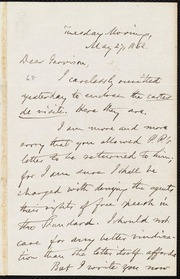 Tuesday Morning,
May 27, 1862.
Dear Garrison,
I carelessly omitted
yesterday to enclose the cartes
de visite. Here they are.
I am more and more
sorry that you allowed P.P.'s
letter to be returned to him;
for I am sure I shall be
charged with denying the agents
their rights of free speech in
the Standard. I should not
care for any better vindica-
tion than the letter itself affords.
But I wrote you now